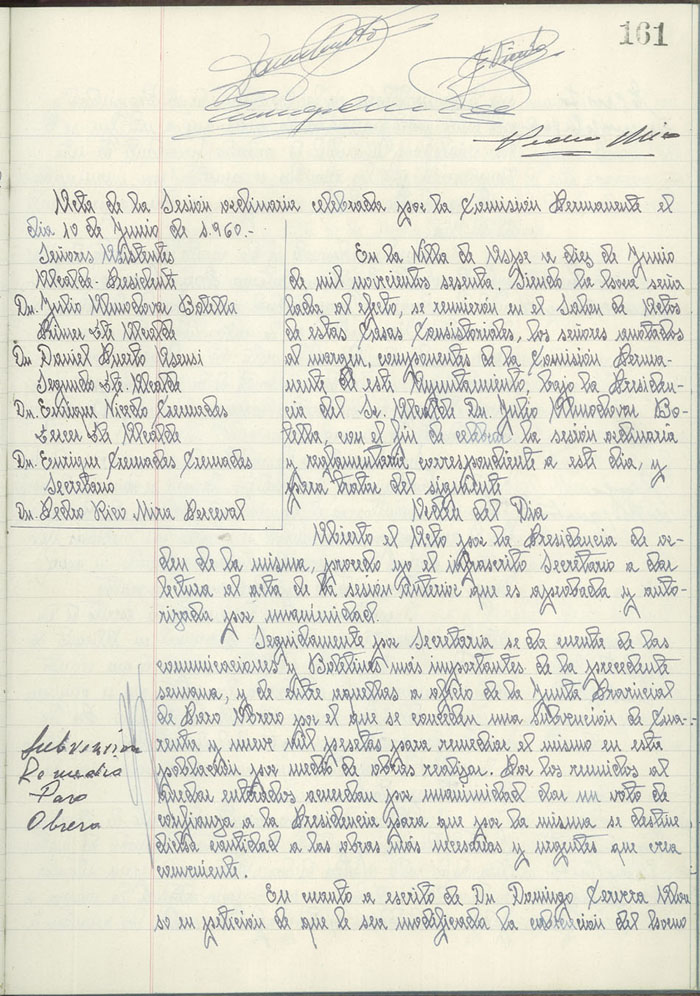 161
Pedro Mira
Acta de la Sesión ordinaria celebrada por la Comisión Permanente el
día 10 de Junio de 1.960.-
Señores Asistentes
Alcalde-Presidente
Dn. Julio Almodovar Botella
Primer Tte Alcalde
Dn Daniel Puerto Asensi
Segundo Tte. Alcalde
Dn. Enrique Nicedo Cremades
Tercer Tte Alcalde
Dn. Enrique Cremades Cremades
Secretario
Dn. Pedro Rico Mira Perceval
En la Villa de Aspe a diez de Junio
de mil novecientos sesenta. Siendo la hora seña
lada al efecto, se reunieron en el Salon de Actos
de estas Casas Consistoriales, los señores anotados
al margen, componentes de la Comisión Perma-
nente de este Ayuntamiento, bajo la Presiden-
cia del Sr. Alcalde Dn. Julio Almodovar Bo-
tella, con el fin de celebrar la sesión ordinaria
y reglamentaria correspondiente a este dia, y
para tratar del siguiente
Orden del Dia
Abierto el Acto por la Presidencia de or-
den de la misma, procedo yo el infrascrito Secretario a dar
lectura al acta de la sesión anterior que es aprobada y auto-
rizada por unanimidad.
Seguidamente por Secretaria se da cuenta de las
comunicaciones y Boletines más importantes de la precedente
semana, y de entre aquellas a oficio de la Junta Provincial
de Paro Obrero por el que se conceden una subvención de Cua-
renta y nueve mil pesetas para remediar el mismo en esta
población por medio de obras realizar. Por los reunidos al
quedar enterados acuerdan por unanimidad dar un voto de
confianza a la Presidencia para que por la misma se destine
dicha cantidad a las obras más necesarias y urgentes que crea
conveniente.
Subvencion
Remedio
Paro
Obrero
En cuanto a escrito de Dn Domingo Cervera Alon
so en petición de que le sea modificada la del horno